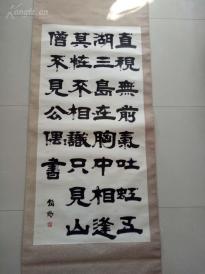 直視無前氣吐虹五
湖三島在胸中相逢
莫怪不相識只見山
僧不見公偶書